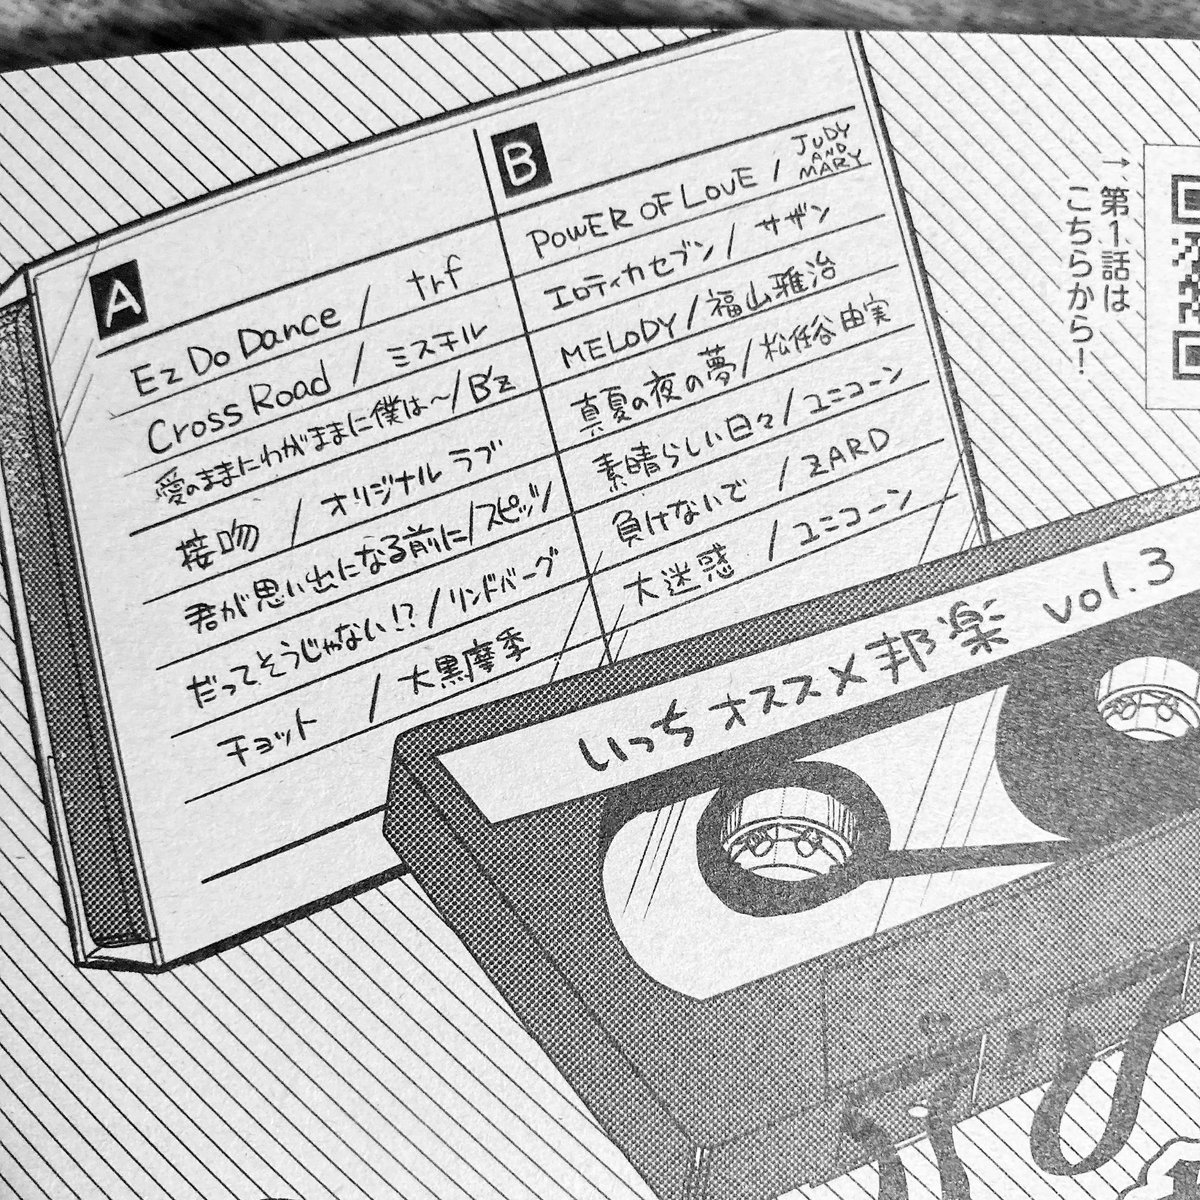 A
Ez Do Dance / trf
Cross Road / ミスチル
愛のままにわがままに僕は〜/B'z
接吻 / オリジナル ラブ
君が思い出になる前に/スピッツ
だってそうじゃない!?/リンドバーグ
チョット / 大黒摩季
B
POWER OF LOVE / JUDY AND MARY
エロティカセブン/ サザン
MELODY/福山雅治
真夏の夜の夢/松任谷由実
素晴らしい日々/ユニコーン
負けないで / ZARD
大迷惑 / ユニコーン
いっちオススメ邦楽 vol.3
→第1話は
こちらから!